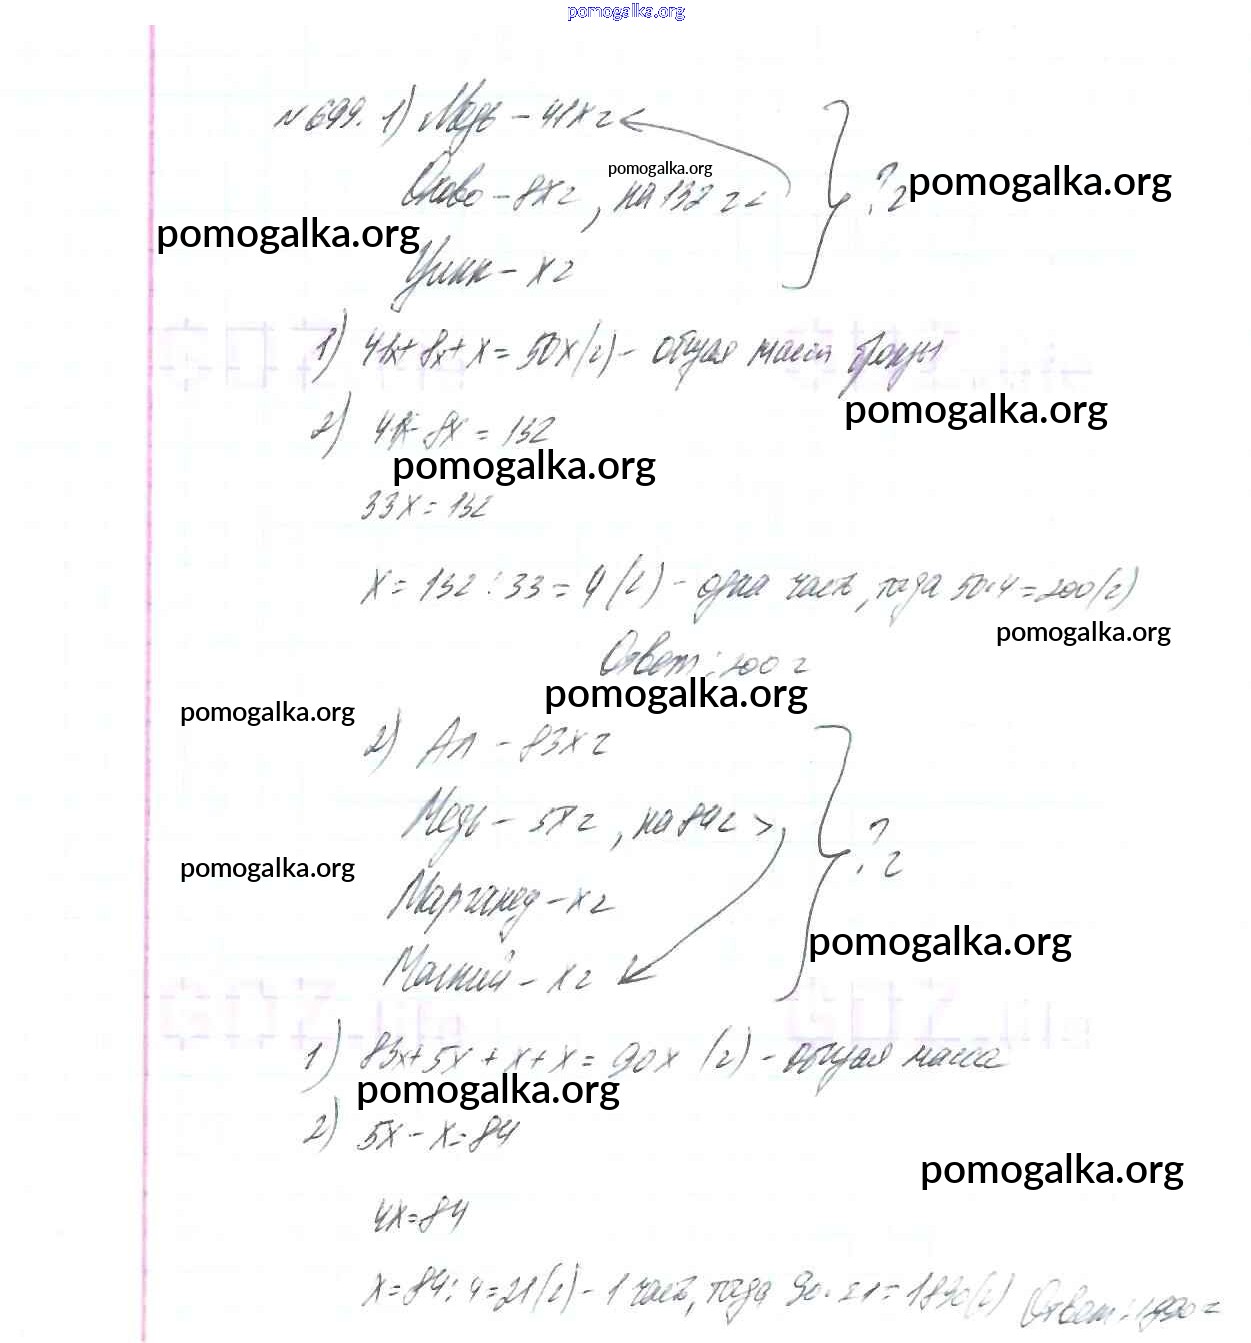 pomogalka.org
№ 699. 1) Медь - 41х г
pomogalka.org
Олово - 8х г, на 132 г < } ? г pomogalka.org
pomogalka.org
Цинк - х г
1) 41х + 8х + х = 50х (г) - общая масса бронзы
pomogalka.org
2) 41х - 8х = 132
pomogalka.org
33х = 132
х = 132 : 33 = 4 (г) - одна часть, тогда 50·4 = 200 (г)
pomogalka.org
Ответ: 200 г
pomogalka.org
pomogalka.org
2) Ал - 83х г
Медь - 5х г, на 84 г > } ? г
pomogalka.org
Марганец - х г
pomogalka.org
Магний - х г
1) 83х + 5х + х + х = 90х (г) - общая масса
pomogalka.org
2) 5х - х = 84
pomogalka.org
4х = 84
х = 84 : 4 = 21 (г) - 1 часть, тогда 90 · 21 = 1890 (г) Ответ: 1890 г